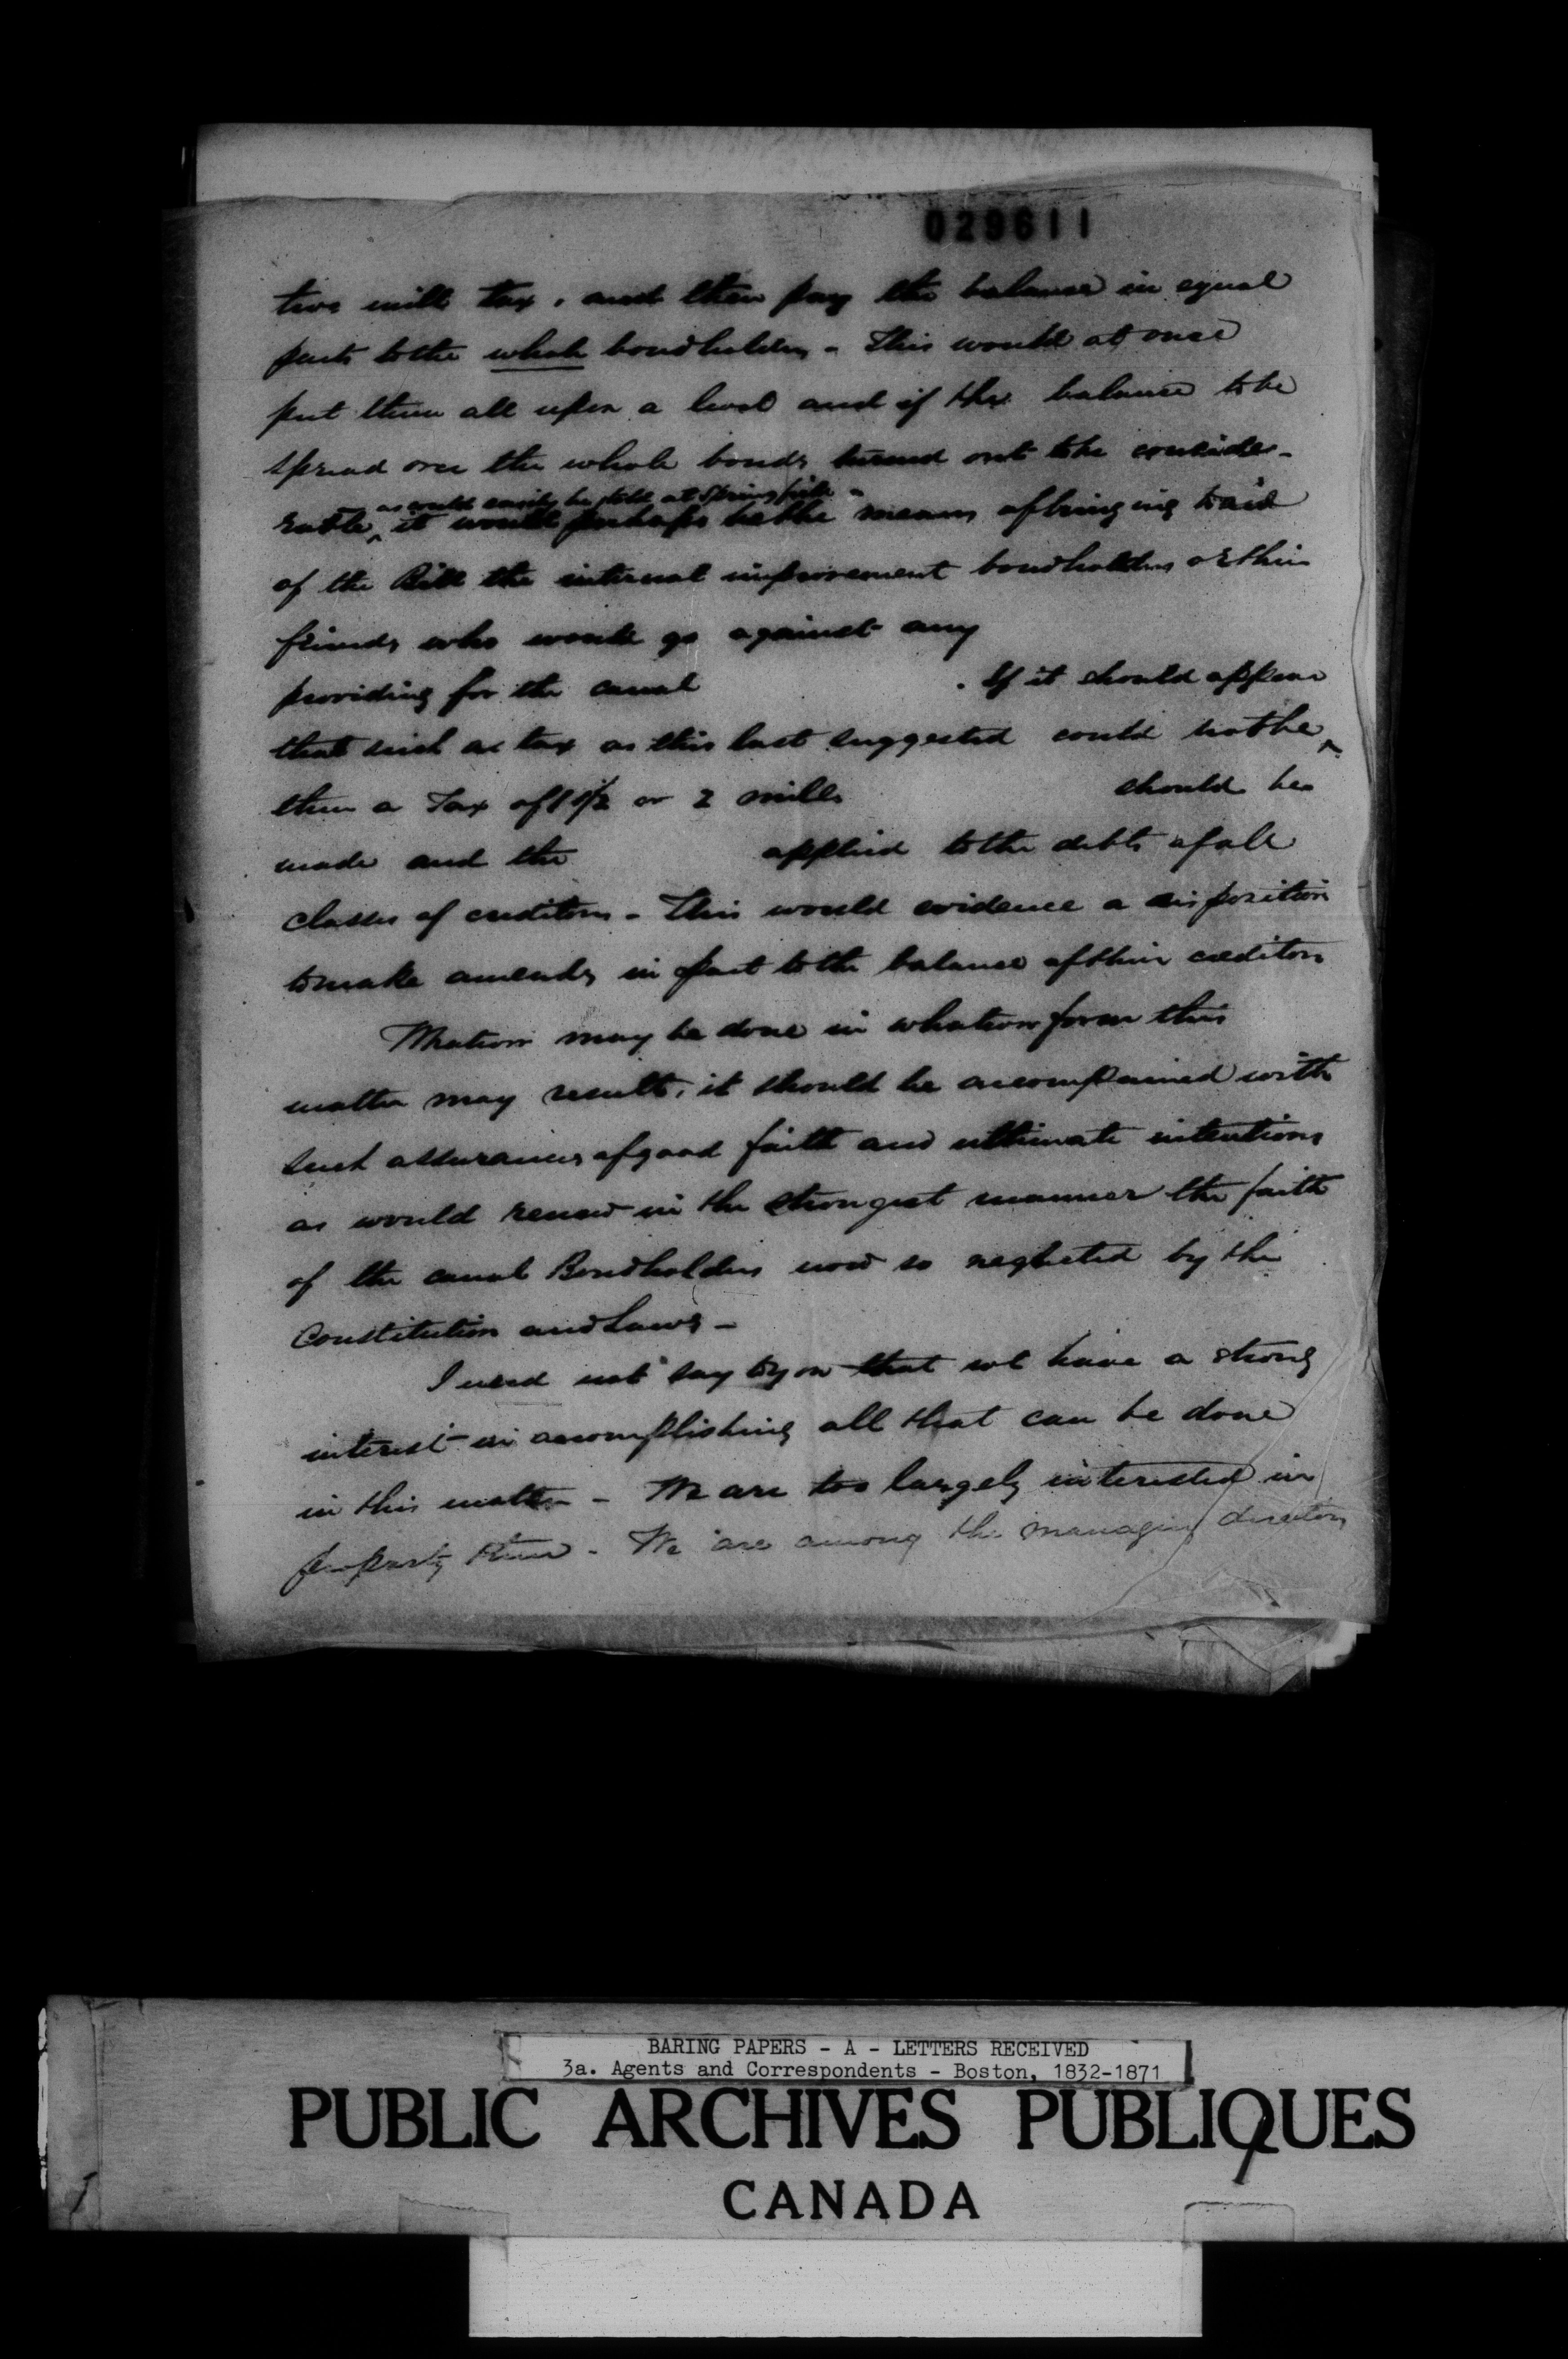 029611
two mill tax, and then pay the balance in equal
parts to the whole bondholders - This would at once
put them all upon a level and if the balance to be
spread over the whole bonds turned out to be conside-
as would easily be told at Springfield -
rable, it would perhaps be the means of bringing to aid
of the Bill the internal improvement bondholders or their
friends who would go against any
providing for the canal . If it should appear
that such a tax as this last suggested could not be
then a Tax of 1 1/2 or 2 mills should be
made and the applied to the debts of all
classes of creditors - This would evidence a disposition
to make amends in part to the balance of their creditors
Whatever may be done in whatever form this
matter may result, it should be accompanied with
such assurances of good faith and ultimate intentions
as would renew in the strongest manner the faith
of the canal Bondholders now so neglected by the
Constitution and Laws -
I need not say to you that we have a strong
interest in accomplishing all that can be done
in this matter - We are too largely interested in
property there - We are among the managing directors
BARING PAPERS - A - LETTERS RECEIVED
3a. Agents and Correspondents - Boston, 1832-1871
PUBLIC ARCHIVES PUBLIQUES
CANADA